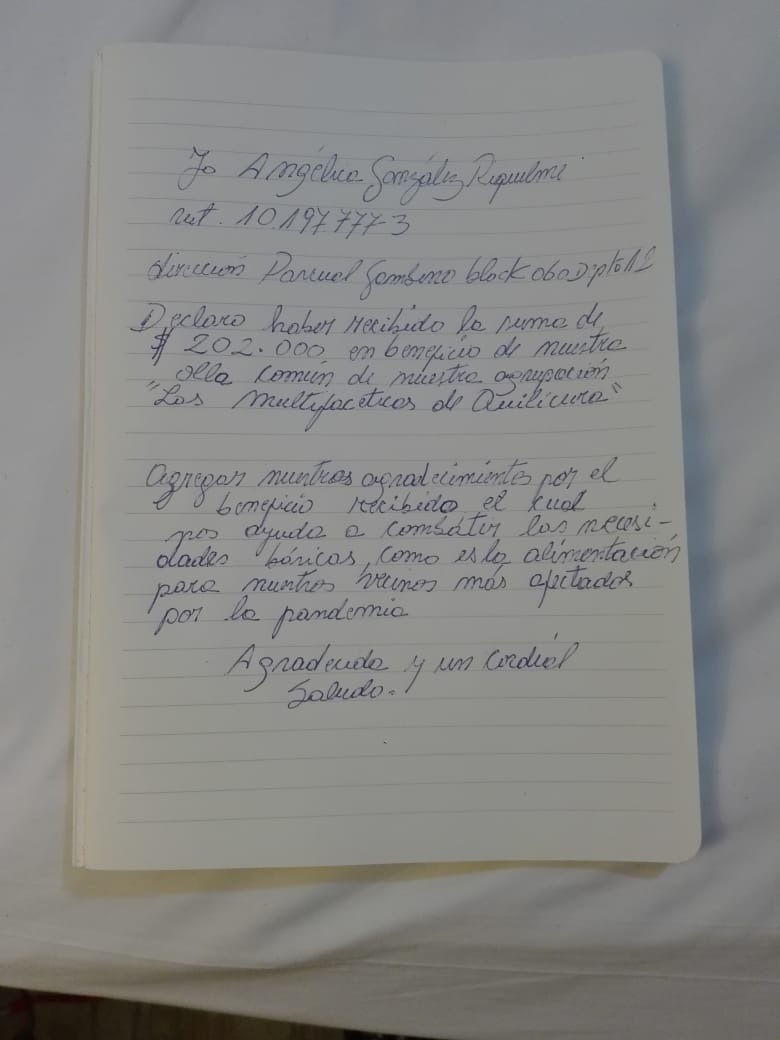 Yo Angélica González Riquelme
rut. 10.197.777-3
dirección Pascual Gambino block 060 Dpto 12
Declaro haber recibido la suma de
$ 202.000 en beneficio de nuestra
olla común de nuestra agrupación
"Las Multifacéticas de Quilicura"
Agregar nuestros agradecimientos por el
beneficio recibido el cual
nos ayuda a combatir las necesi-
dades básicas, como es la alimentación
para nuestros vecinos más afectados
por la pandemia
Agradecida y un cordial
Saludo.